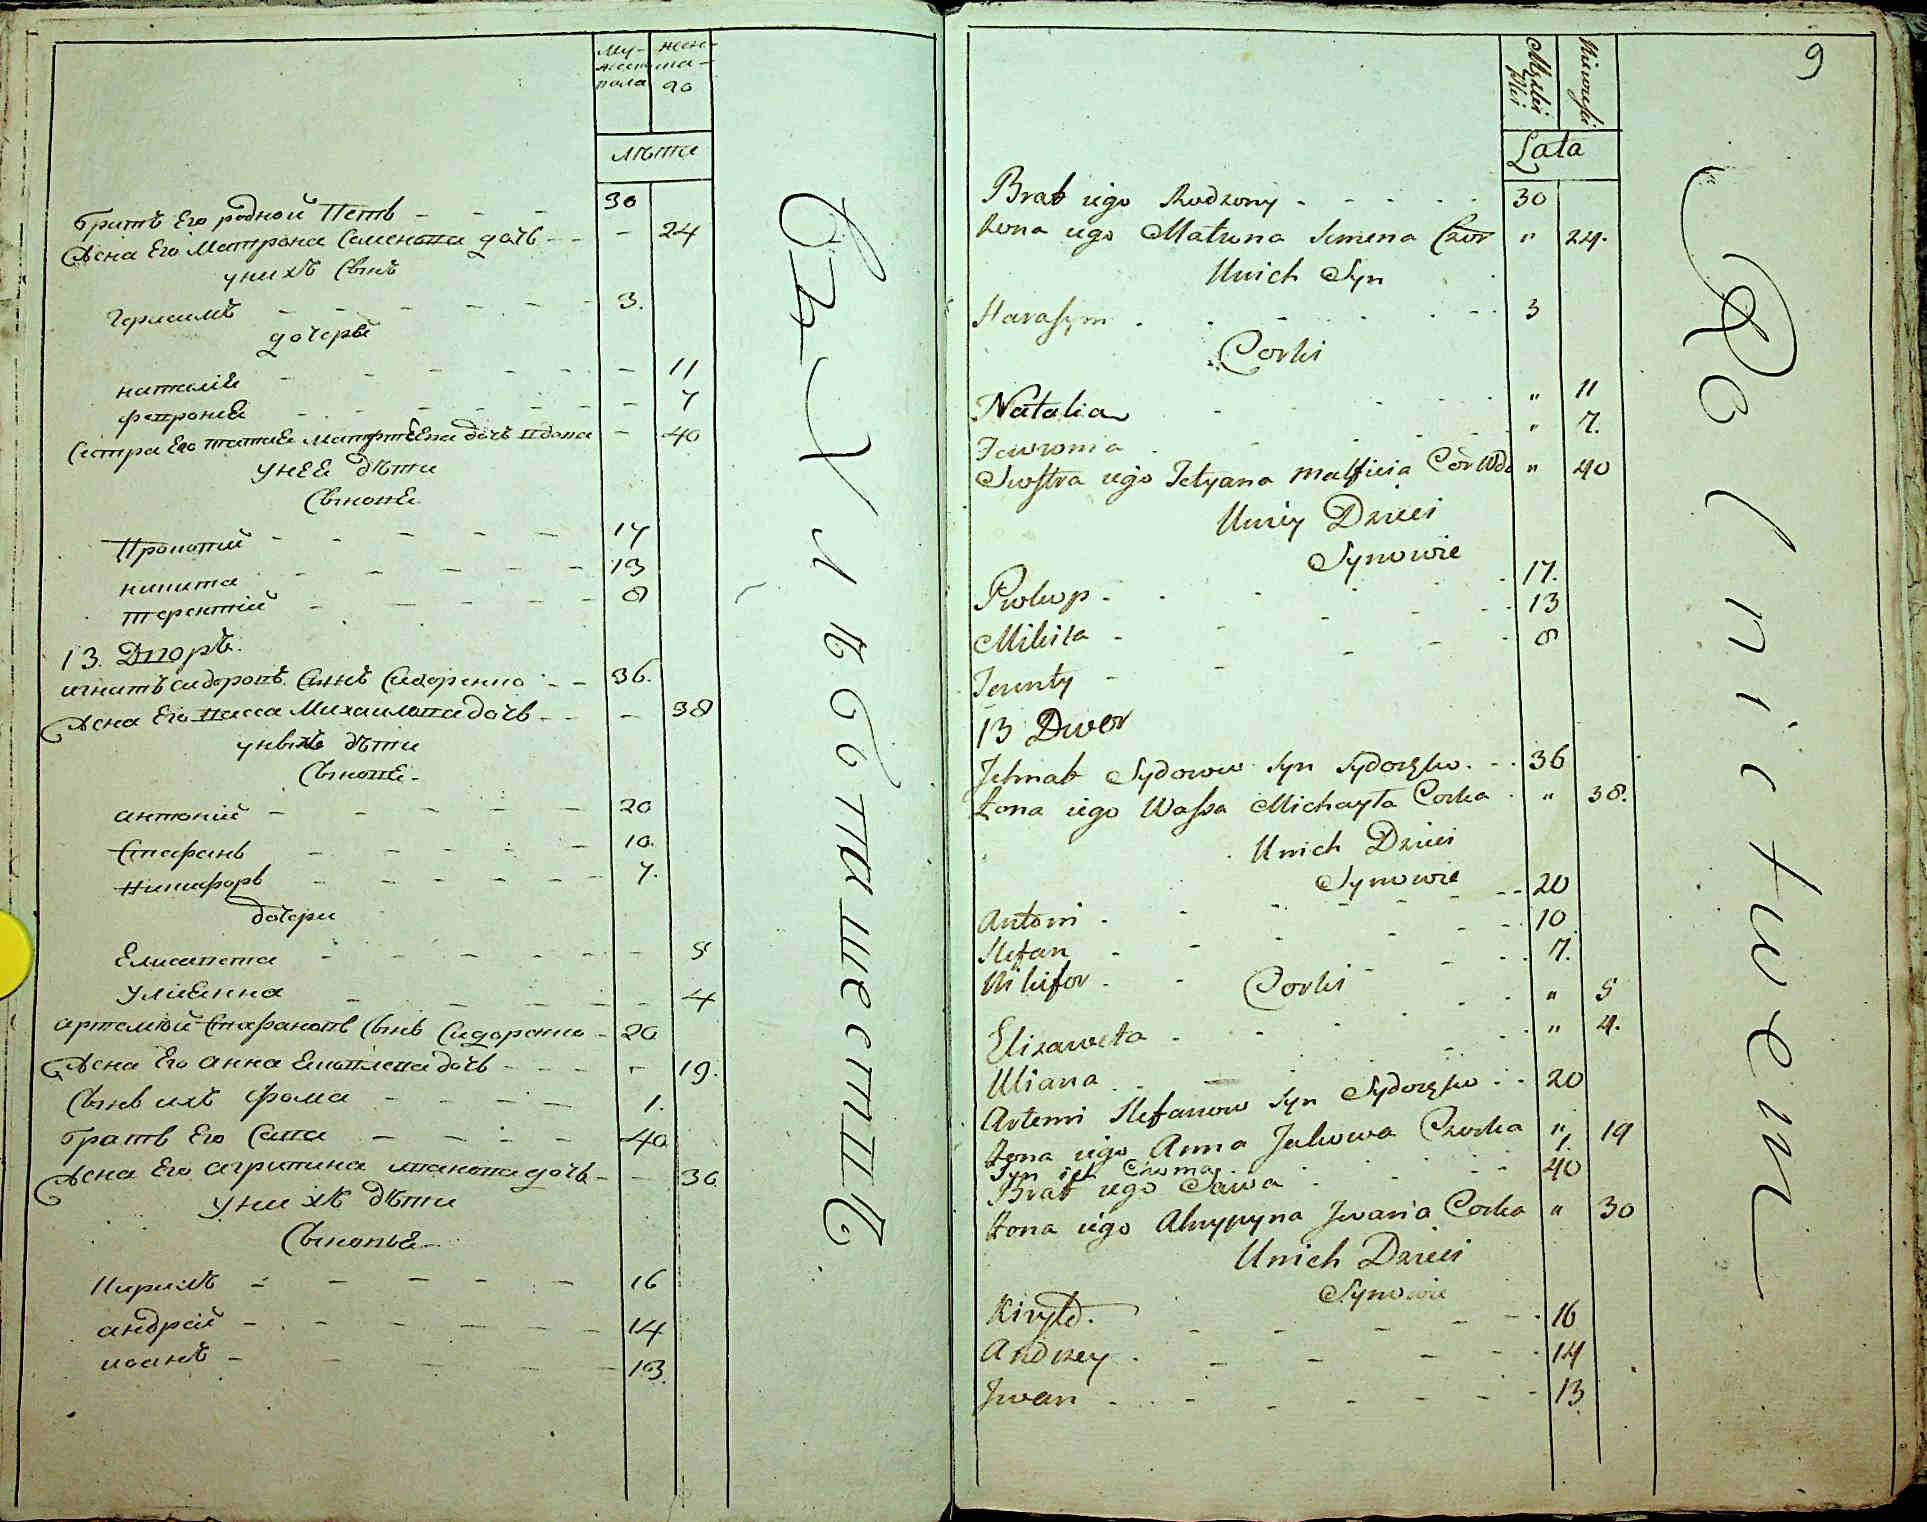 му-
жеск
пола
жен-
ска-
го
лѣта
братъ Его родной Петв - - - 30
Жена Его Матрона Семенова дочь - - - 24
у нихъ Сынъ
Герасимъ - - - - - 3.
дочерьи
наталія - - - - - 11
февронія - - - - - 7
Сестра Его татіа Матфѣева дочь вдова - 40
У нЕя дѣти
Сыновѣ
Прокопій - - - - - 17
никита - - - - - 13
терентій - - - - - 8
13. Дворъ.
игнатъ сидоровъ Сынъ Сидоренко - - 36.
Жена Его васса Михаилова дочь - - - 38
у нихъ дѣти
Сыновѣ-
антоній - - - - 20
Стефанъ - - - - 10.
Никифоръ - - - - - 7.
дочери
Елисавета - - - - - 5
Улиянна - - - - - 4
артемій Стефановъ Сынъ Сидоренко - 20
Жена Его анна Яковлева дочь - - - - 19.
Сынъ ихъ Фома - - - - 1.
братъ Его Сава - - - - 40
Жена Его агрипина иванова дочь - - 30
У нихъ дѣти
Сыновья-
Кирилъ - - - - - 16
андрей - - - - - - 14
иоанъ - - - - - 13.
въ Хлѣботашествѣ
9
Męskei
Płci
Niewiesckei
Lata
Brat iego Rodzony - - - - - 30
Zona iego Matrona Semena Czor " 24.
Unich Syn
Harasym - - - - - 3
Corki
Natalia - - - - " 11
Fewronia - - - - " 7.
Siostra iego Tetyana Matficia Cor Wdo " 40
Uniey Dzieci
Synowie
Prokop - - - - - 17.
Mikita - - - - - 13
Terenty - - - - - 8
13 Dwor
Jehnat Sydorow Syn Sydoręko. - - 36
Zona iego Wassa Michayła Corka - " 38.
Unich Dzieci
Synowie
Antoni - - - - - 20
Stefan - - - - - 10
Nikifor - - - - - 7.
Corki
Elizaweta - - - - - " 5
Uliana - - - - " 4.
Artemi Stefanow Syn Sydoręko - - 20
Zona iego Anna Jakowa Czorka " 19
Syn ich Choma - 1.
Brat iego Sawa - - - - 40
Zona iego Ahrypyna Jwana Corka " 30
Unich Dzieci
Synowie
Kiryło. - - - - - 16
Andrzey - - - - - 14
Jwan - - - - - - 13
Rolnictwem